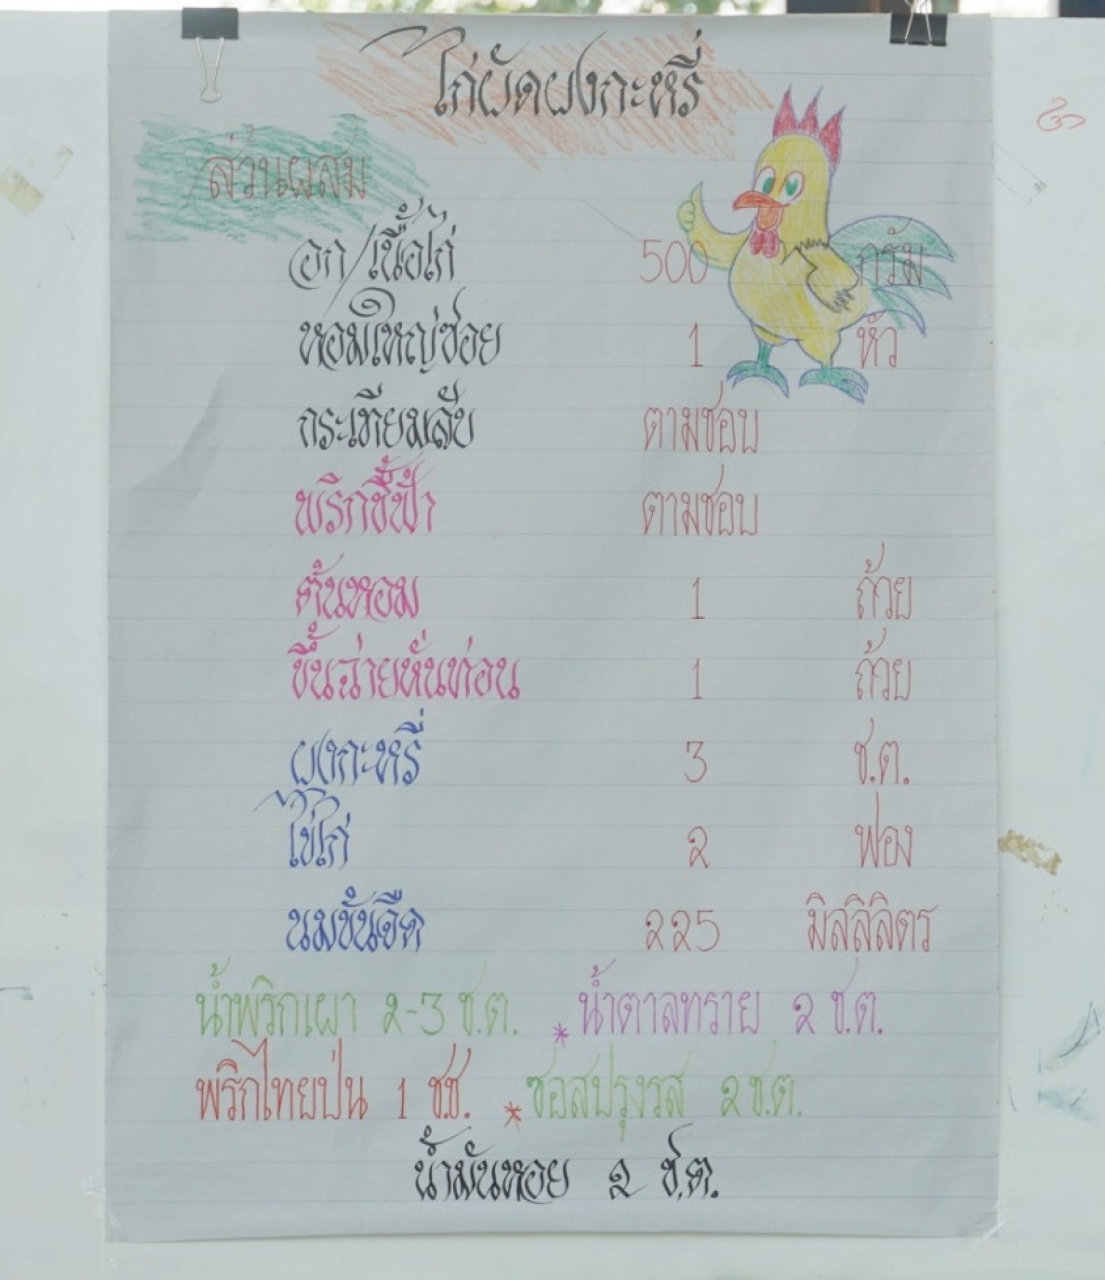 ไก่ผัดผงกะหรี่
ส่วนผสม
อก/เนื้อไก่ 500 กรัม
หอมใหญ่ซอย 1 หัว
กระเทียมสับ ตามชอบ
พริกชี้ฟ้า ตามชอบ
ต้นหอม 1 ถ้วย
ขึ้นฉ่ายหั่นท่อน 1 ถ้วย
ผงกะหรี่ 3 ช.ต.
ไข่ไก่ 2 ฟอง
นมข้นจืด 225 มิลลิลิตร
น้ำพริกเผา 2-3 ช.ต. * น้ำตาลทราย 2 ช.ต.
พริกไทยป่น 1 ช.ช. * ซอสปรุงรส 2 ช.ต.
น้ำมันหอย 2 ช.ต.